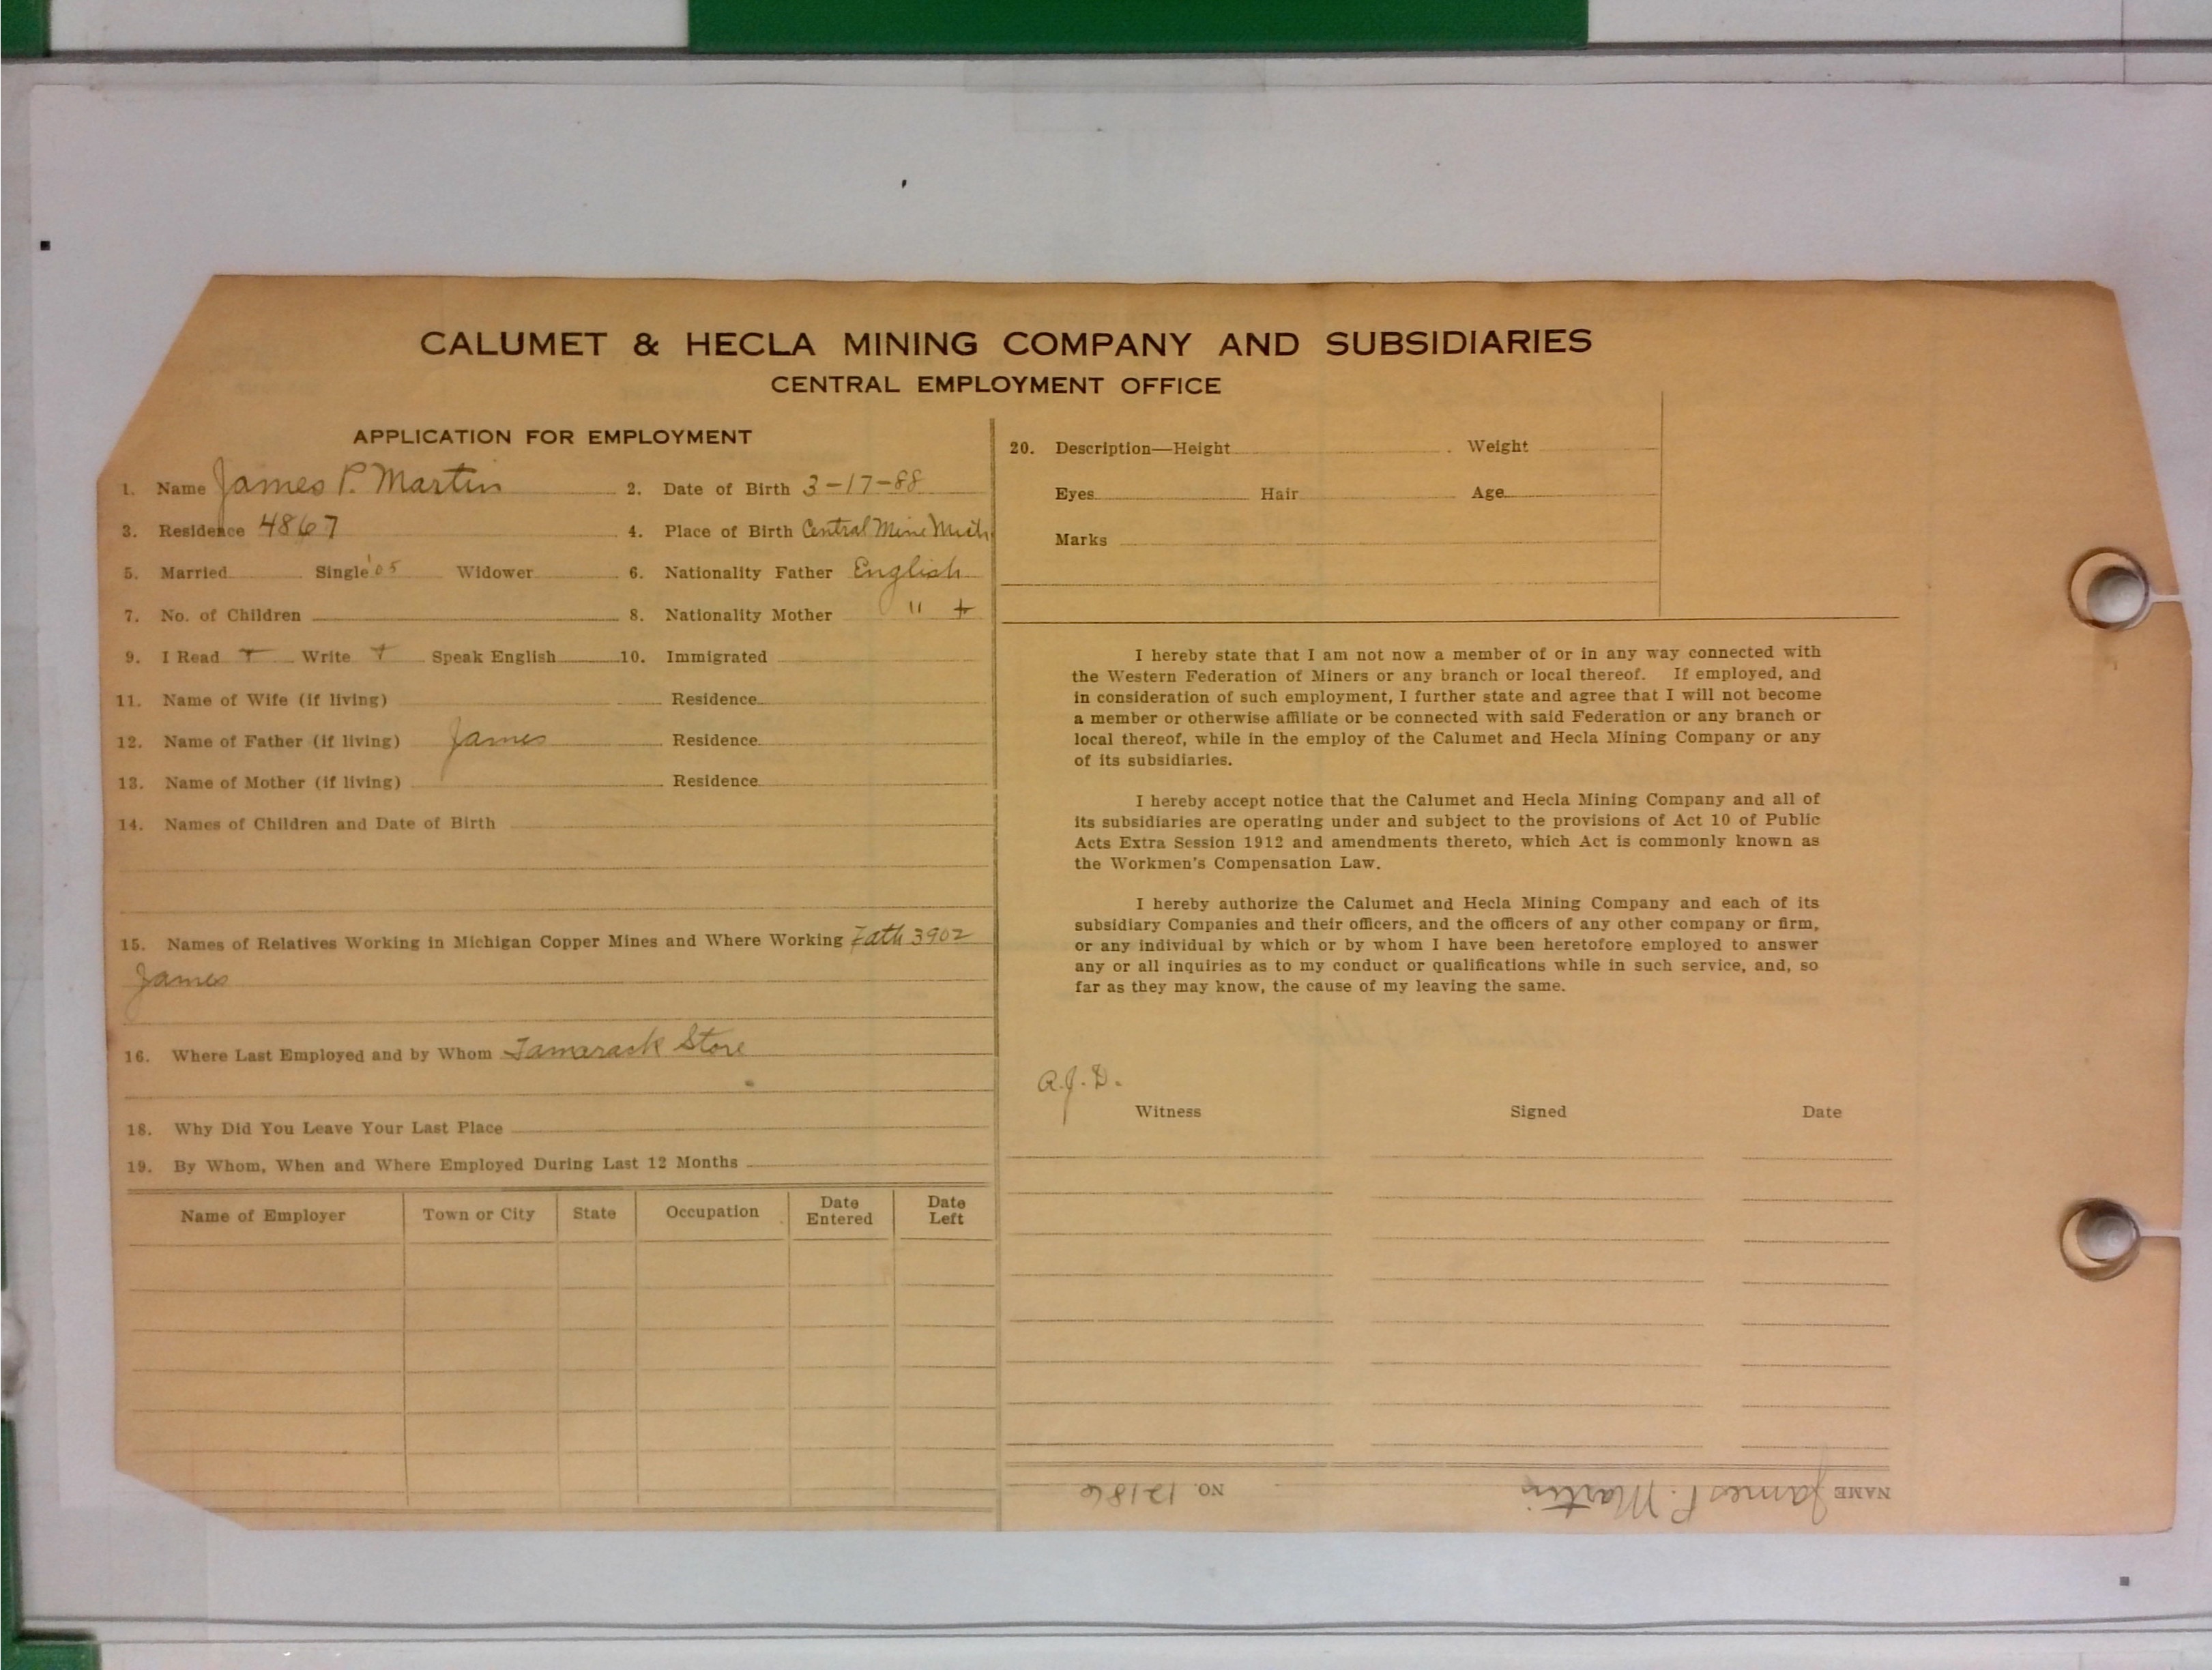 CALUMET & HECLA MINING COMPANY AND SUBSIDIARIES
CENTRAL EMPLOYMENT OFFICE
APPLICATION FOR EMPLOYMENT
1. Name James P. Martin 2. Date of Birth 3-17-88
3. Residence 4867 4. Place of Birth Central Mine Mich
5. Married Single '05 Widower 6. Nationality Father English
7. No. of Children 8. Nationality Mother " +
9. I Read + Write + Speak English 10. Immigrated
11. Name of Wife (if living) Residence
12. Name of Father (if living) James Residence
13. Name of Mother (if living) Residence
14. Names of Children and Date of Birth
15. Names of Relatives Working in Michigan Copper Mines and Where Working Fath 3902
James
16. Where Last Employed and by Whom Tamarack Store
18. Why Did You Leave Your Last Place
19. By Whom, When and Where Employed During Last 12 Months
Name of Employer Town or City State Occupation Date Entered Date Left
20. Description—Height Weight
Eyes Hair Age
Marks
I hereby state that I am not now a member of or in any way connected with
the Western Federation of Miners or any branch or local thereof. If employed, and
in consideration of such employment, I further state and agree that I will not become
a member or otherwise affiliate or be connected with said Federation or any branch or
local thereof, while in the employ of the Calumet and Hecla Mining Company or any
of its subsidiaries.
I hereby accept notice that the Calumet and Hecla Mining Company and all of
its subsidiaries are operating under and subject to the provisions of Act 10 of Public
Acts Extra Session 1912 and amendments thereto, which Act is commonly known as
the Workmen's Compensation Law.
I hereby authorize the Calumet and Hecla Mining Company and each of its
subsidiary Companies and their officers, and the officers of any other company or firm,
or any individual by which or by whom I have been heretofore employed to answer
any or all inquiries as to my conduct or qualifications while in such service, and, so
far as they may know, the cause of my leaving the same.
A.J.D.
Witness Signed Date
NAME James P. Martin NO. 12186